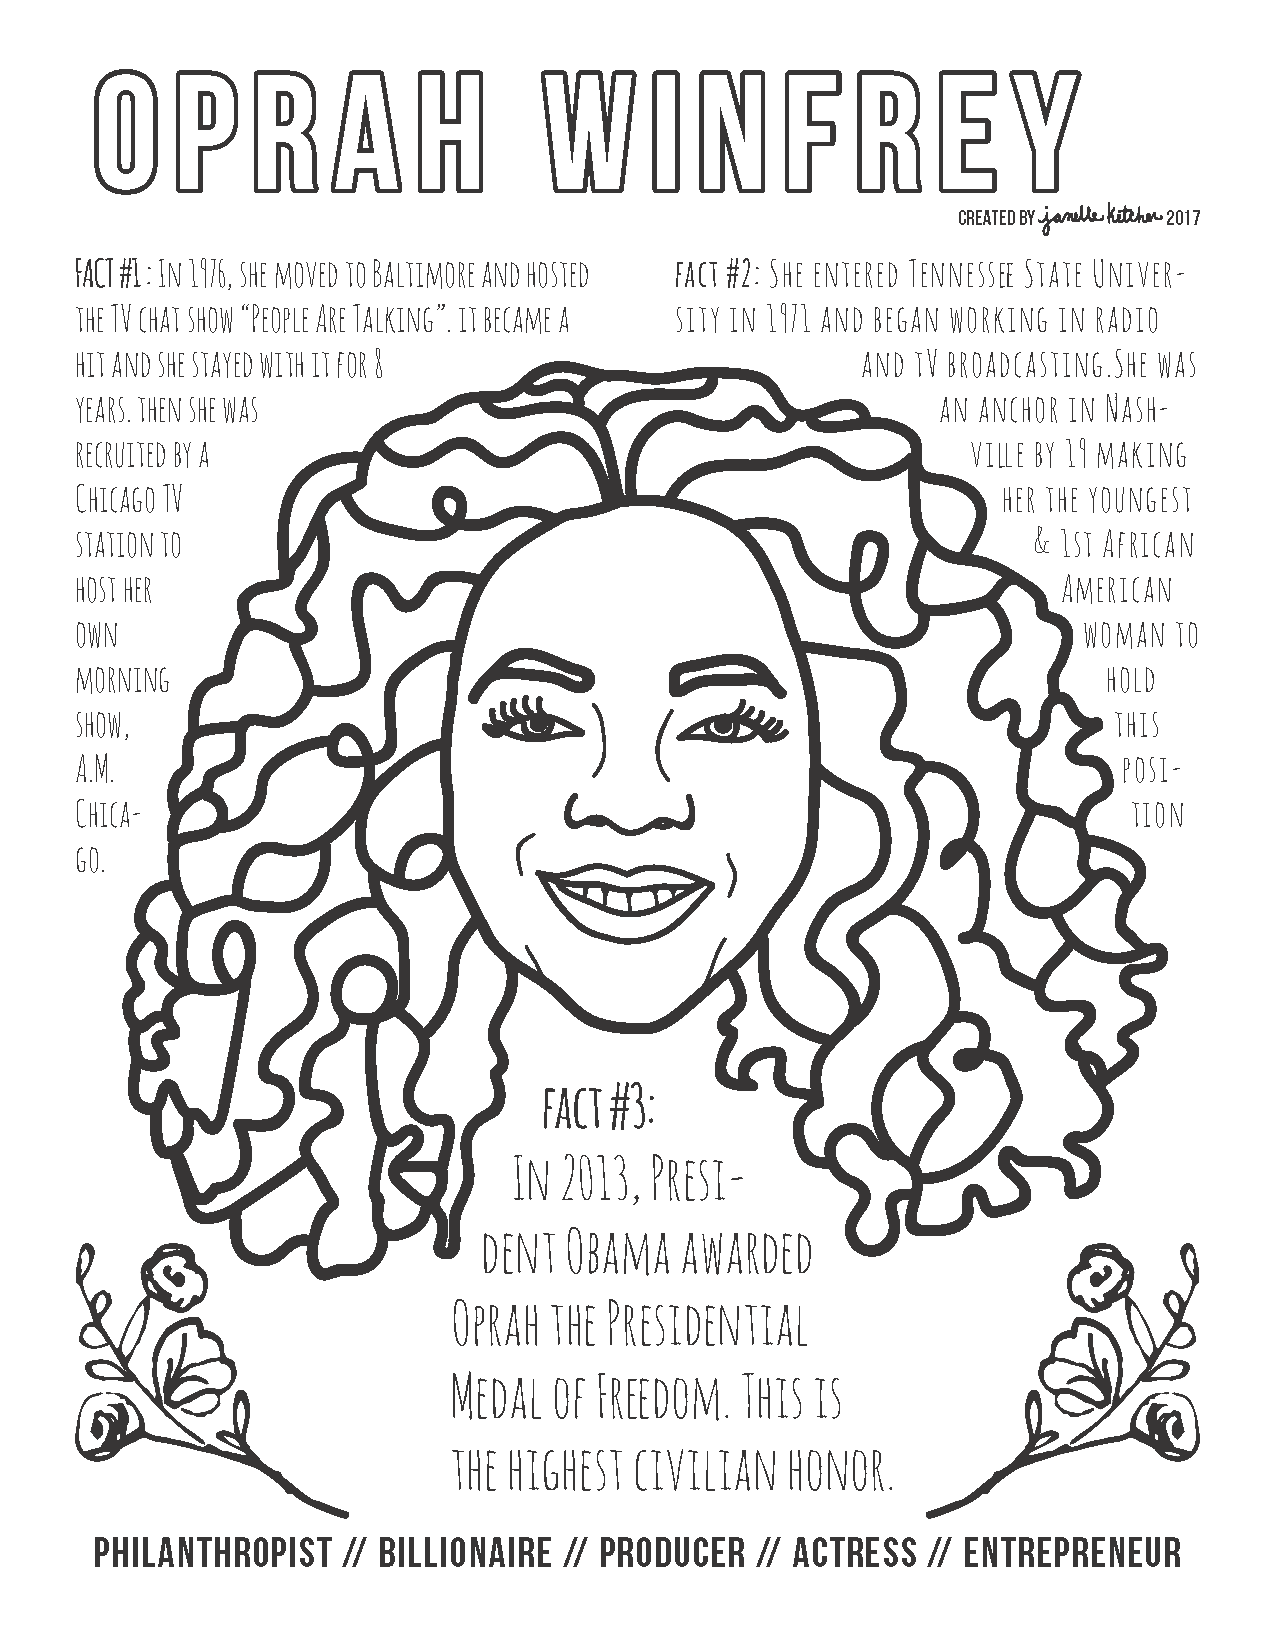 OPRAH WINFREY
CREATED BY janelle ketcher 2017
FACT #1: IN 1976, SHE MOVED TO BALTIMORE AND HOSTED
THE TV CHAT SHOW “PEOPLE ARE TALKING”. IT BECAME A
HIT AND SHE STAYED WITH IT FOR 8
YEARS. THEN SHE WAS
RECRUITED BY A
CHICAGO TV
STATION TO
HOST HER
OWN
MORNING
SHOW,
A.M.
CHICA-
GO.
FACT #2: SHE ENTERED TENNESSEE STATE UNIVER-
SITY IN 1971 AND BEGAN WORKING IN RADIO
AND TV BROADCASTING.SHE WAS
AN ANCHOR IN NASH-
VILLE BY 19 MAKING
HER THE YOUNGEST
& 1ST AFRICAN
AMERICAN
WOMAN TO
HOLD
THIS
POSI-
TION
FACT #3:
IN 2013, PRESI-
DENT OBAMA AWARDED
OPRAH THE PRESIDENTIAL
MEDAL OF FREEDOM. THIS IS
THE HIGHEST CIVILIAN HONOR.
PHILANTHROPIST // BILLIONAIRE // PRODUCER // ACTRESS // ENTREPRENEUR